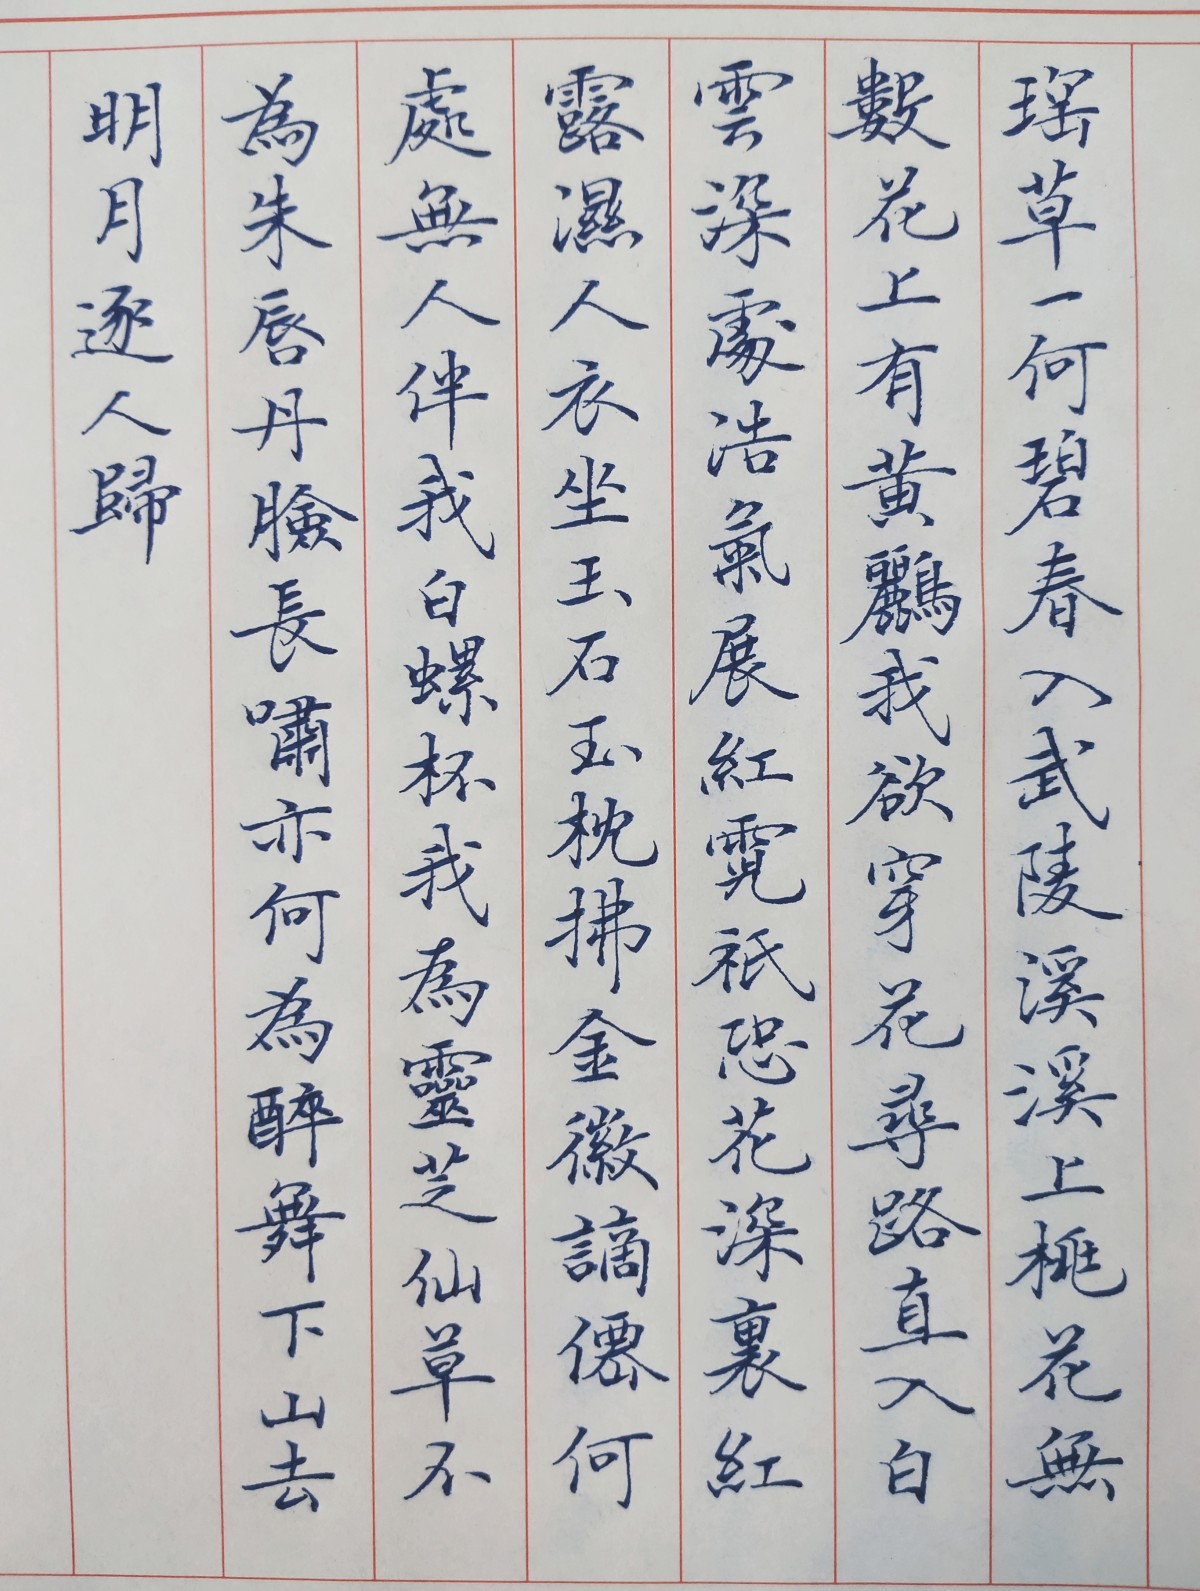 瑶草一何碧春入武陵溪溪上桃花無
數花上有黄鸝我欲穿花尋路直入白
雲深處浩氣展紅霓祇恐花深裏紅
露濕人衣坐玉石玉枕拂金徽謫僊何
處無人伴我白螺杯我為靈芝仙草不
為朱唇丹臉長嘯亦何為醉舞下山去
明月逐人歸